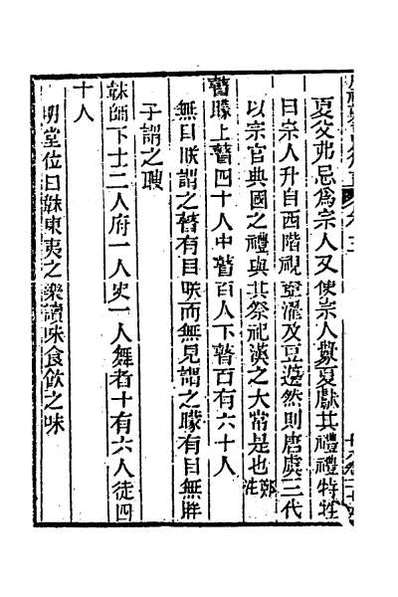 夏父弗忌為宗人又使宗人釁夏獻其禮禮特牲
曰宗人升自西階視壼濯及豆籩然則唐虞三代
以宗官典國之禮與其祭祀漢之大常是也鄭注
瞽矇上瞽四十人中瞽百人下瞽百有六十人
無目眹謂之瞽有目眹而無見謂之矇有目無眸
子謂之瞍
韎師下士二人府一人史一人舞者十有六人徒四
十人
明堂位曰韎東夷之樂讀味食飲之味